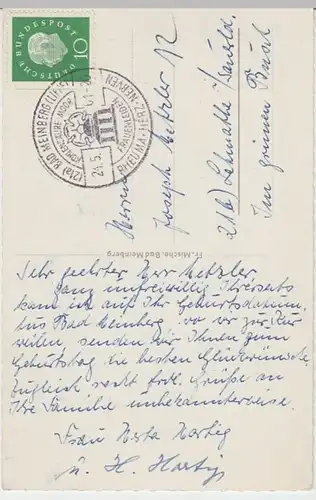 DEUTSCHE BUNDESPOST
10
(21a) BAD MEINBERG (LIPPE)
KOHLENSÄURE-MOOR
24.5.
RHEUMA-HERZ-NERVEN
FRAUENLEIDEN
Herrn
Joseph Metzler
21b) Letmathe
Im grünen
Fr. Mische, Bad Meinberg
Sehr geehrter Herr Metzler,
Ganz unfreiwillig Ihrerseits
kam ich auf Ihr Geburtsdatum.
Aus Bad Meinberg wo wir zur Kur
weilen, senden wir Ihnen zum
Geburtstag die besten Glückwünsche.
Zugleich recht frdl. Grüße an
Ihre Familie unbekannterweise.
Frau Herta Hartig
u. H. Hartig